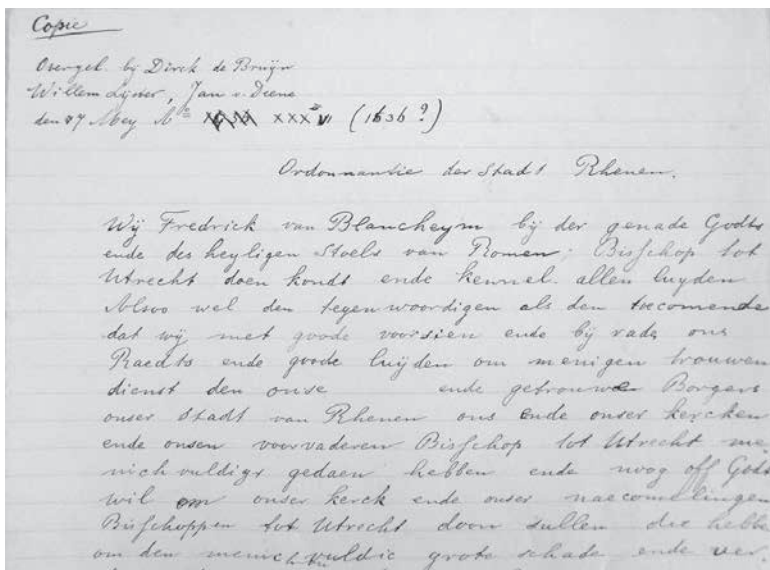 Copie
Overgel. bij Dirck de Bruijn
Willem Lijster, Jan v. Diene
den 27 Mey Aº XXX VI (1636?)
Ordonnantie der Stadt Rhenen.
Wij Fredrick van Blancheym bij der genade Godts
ende des heyligen Stoels van Romen; Bisschop tot
Utrecht doen kondt ende kennel. allen luyden
Alsoo wel den tegenwoordigen als den toecomende
dat wij met goode voorsien ende bij rade ons
Raedts ende goode luijden om menigen trouwen
dienst den onse ende getrouwe Borgers
onser Stadt van Rhenen ons ende onser kercken
ende onsen voorvaderen Bisschop tot Utrecht me-
nichvuldigr gedaen hebben ende noog off Godt
wil om onser kerck ende onser naecomelingen
Bisschoppen tot Utrecht doen sullen die hebbe
om den menichvuldic grote schade ende ver-